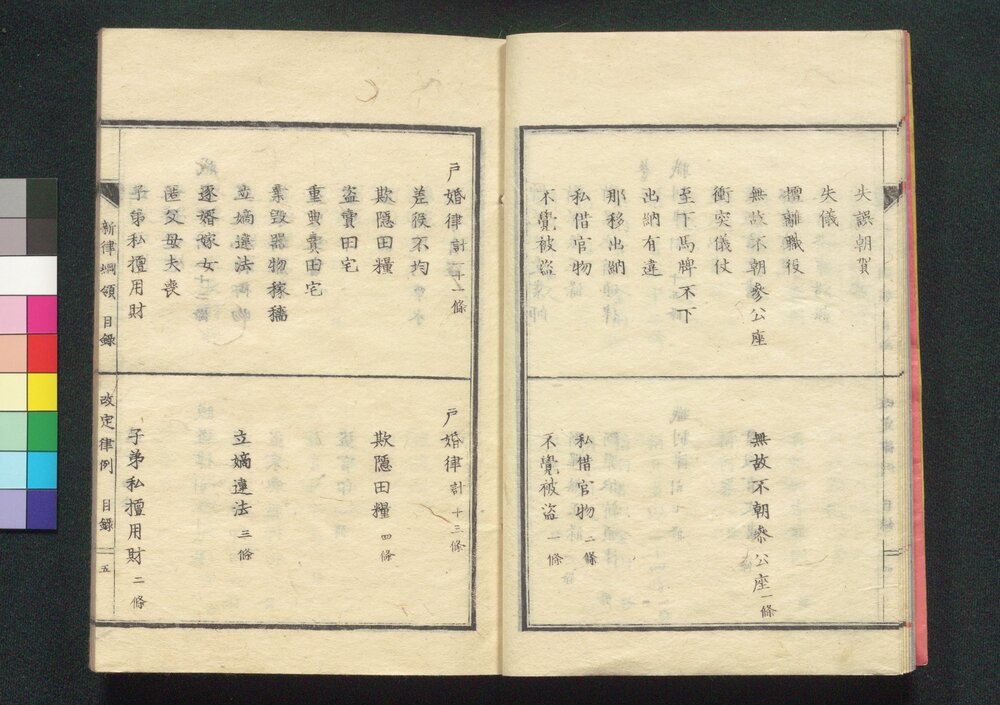 失誤朝賀
失儀
擅離職役
無故不朝參公座
衝突儀仗
至下馬牌不下
出納有違
那移出納
私借官物
不覺被盗
無故不朝參公座 一條
私借官物 二條
不覺被盗 一條
戸婚律 計二十一條
差役不均
欺隱田糧
盜賣田宅
重典賣田宅
棄毀器物稼穡
立嫡違法
逐婿嫁女
匿父母夫喪
子弟私擅用財
戸婚律 計十三條
欺隱田糧 四條
立嫡違法 三條
子弟私擅用財 二條
新律綱領 目錄
改定律例 目錄 五